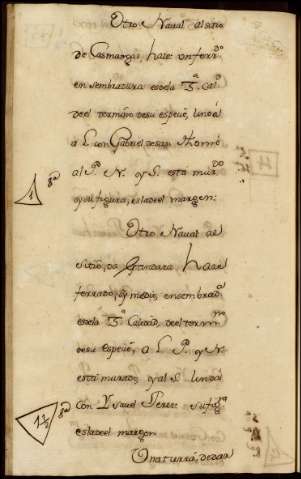 Otro Naval al sitio
de Casmarzas, hace un ferr.do
en sembradura es de la 3.a Cal.d
de el termino de su espezie, linda
a L. con Gabriel de San Thomé
al P. N. y S. esta mur.do
y su figura, es la del margen:
1 f.a
Otro Naval al
sitio, da Grandara, hace
ferrado, y medio en sembrad.a
es de la 3.a Calidad, de el term.no
de su Espezie, a L. P. y N.
esta murado, y al S. linda
con Ysavel Perez su fig.a
es la de el margen
1 1/2 f.a
Una tierra, de dar